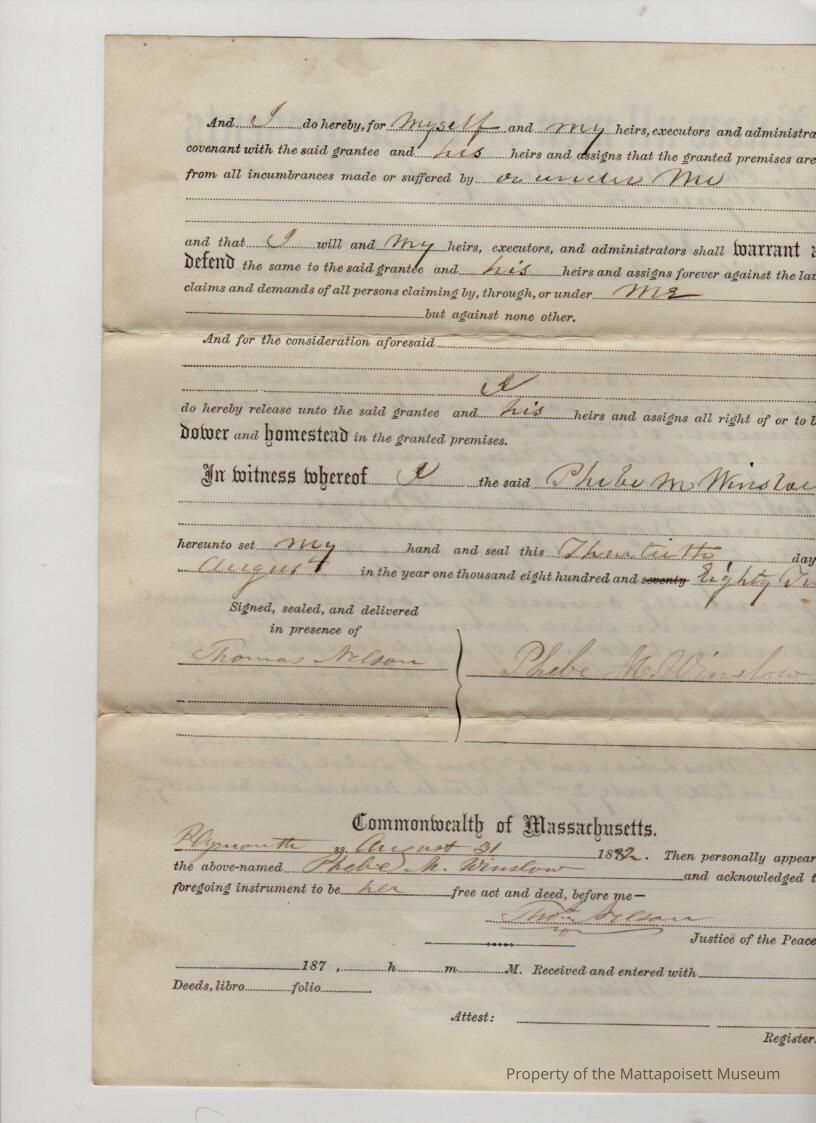 And I do hereby, for myself and my heirs, executors and administra
covenant with the said grantee and his heirs and assigns that the granted premises are
from all incumbrances made or suffered by or under me
and that I will and my heirs, executors, and administrators shall warrant a
defend the same to the said grantee and his heirs and assigns forever against the law
claims and demands of all persons claiming by, through, or under me
but against none other.
And for the consideration aforesaid
I
do hereby release unto the said grantee and his heirs and assigns all right of or to b
dower and homestead in the granted premises.
In witness whereof I the said Phebe M Winslow
hereunto set my hand and seal this Thirtieth day
August in the year one thousand eight hundred and seventy Eighty Tw
Signed, sealed, and delivered
in presence of
Thomas Nelson Phebe M. Winslow
Commonwealth of Massachusetts.
Plymouth ss. August 31 1882. Then personally appear
the above-named Phebe M. Winslow and acknowledged t
foregoing instrument to be her free act and deed, before me—
Thos Nelson
Justice of the Peace
187 , h m M. Received and entered with
Deeds, libro folio
Attest:
Register.
Property of the Mattapoisett Museum